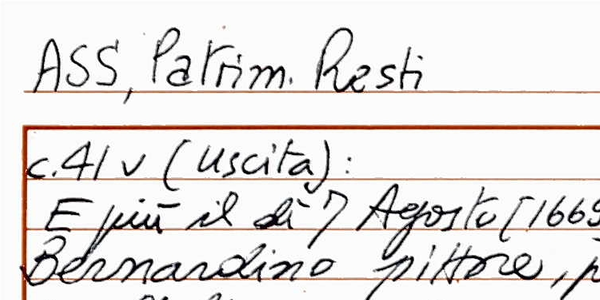 ASS, Patrim. Resti
c.41 v (Uscita):
E più il dì 7 Agosto [1669
Bernardino pittore, p